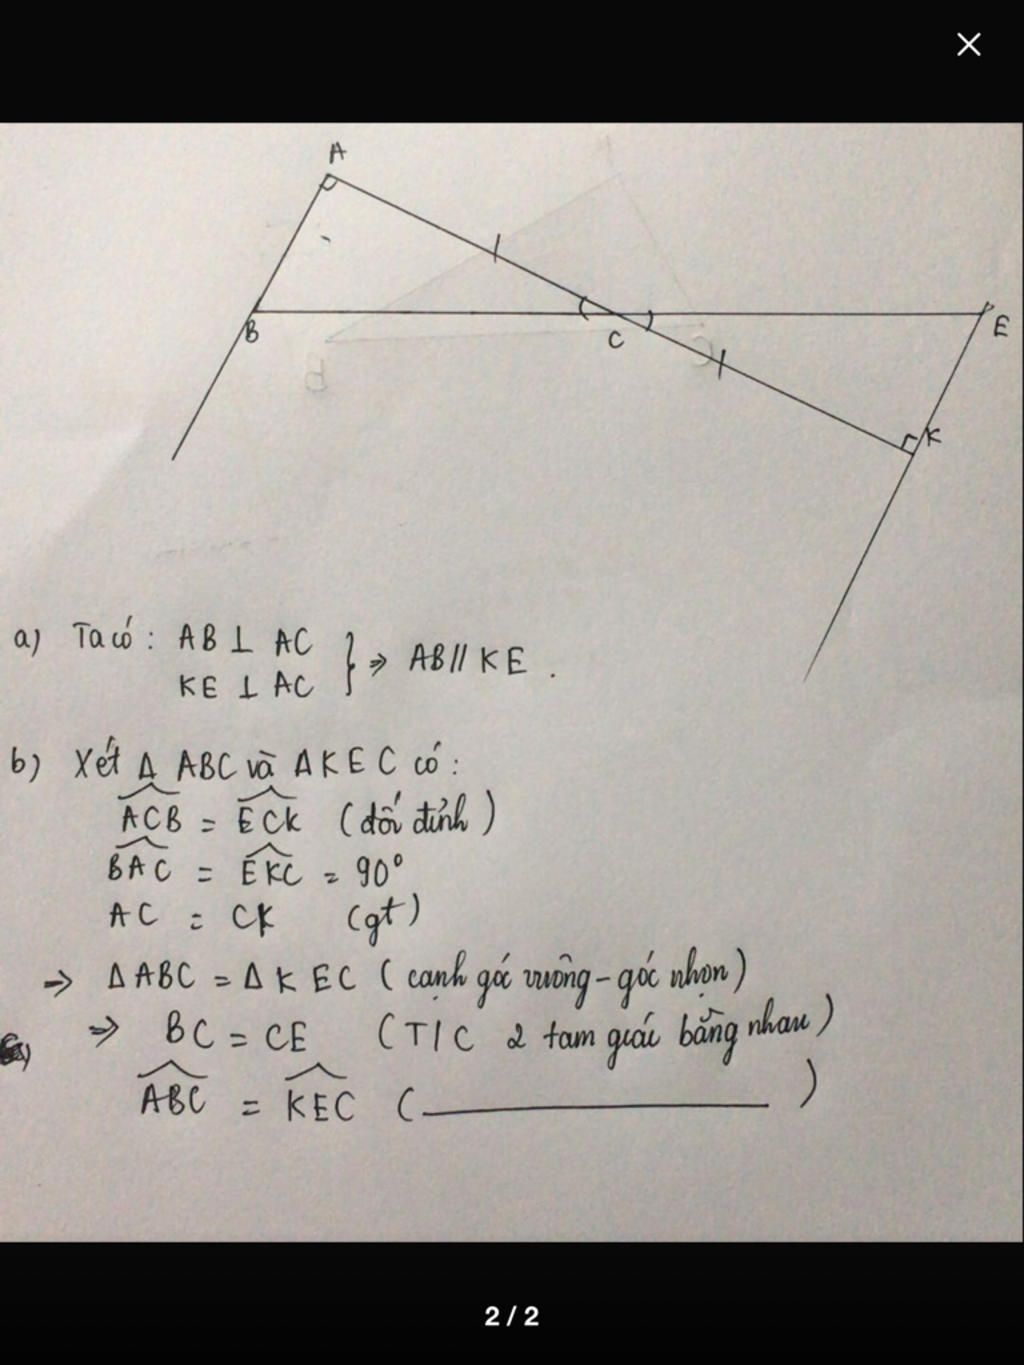 A
B
C
E
K
a) Ta có : AB ⊥ AC
KE ⊥ AC } ⇒ AB // KE .
b) Xét Δ ABC và Δ KEC có :
ACB = ECK (đối đỉnh)
BAC = EKC = 90°
AC = CK (gt)
⇒ Δ ABC = Δ KEC ( cạnh góc vuông - góc nhọn )
⇒ BC = CE ( T/C 2 tam giác bằng nhau )
ABC = KEC ( )
2 / 2